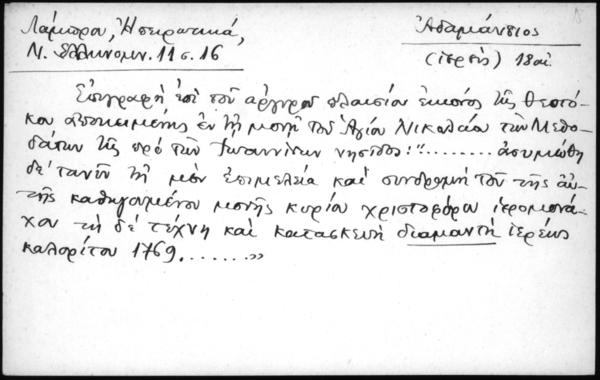 Λάμπρου, Ἠπειρωτικά,
Ν. Ἑλληνομν. 11 σ. 16
Ἀδαμάντιος
(ἱερεὺς) 18 αἰ.
Ἐπιγραφὴ ἐπὶ τοῦ ἀργυροῦ πλαισίου εἰκόνος τῆς Θεοτό-
κου ἀποκειμένης ἐν τῇ μονῇ τοῦ Ἁγίου Νικολάου τῶν Μεθο-
δάτων τῆς πρὸ τῶν Ἰωαννίνων νησῖδος: "........ ἀσυμώθη
δὲ τανῦν τῇ μὲν ἐπιμελείᾳ καὶ συνδρομῇ τοῦ τῆς αὐ-
τῆς καθηγουμένου μονῆς κυρίου χριστοφόρου ἱερομονά-
χου τῇ δὲ τέχνῃ καὶ κατασκευῇ διαμαντῆ ἱερέως
καλορίτου 1769........"